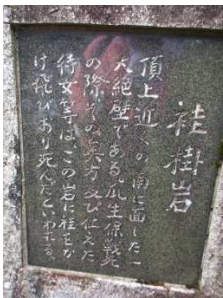 袿掛岩
頂上近くの南に面した一
大絶壁である。瓜生保戦死
の際その奥方及び仕えた
侍女等は、この岩に袿をか
け飛びあり死んだといわれる。